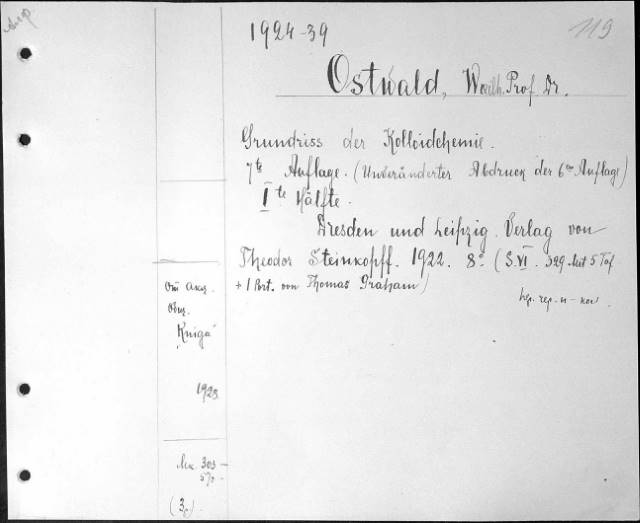 119
1924-39
Ostwald, Prof. Dr.
Grundriss der Kolloidchemie.
7te Auflage. (Unveränderter Abdruck der 6ten Auflage)
I te Hälfte.
Dresden und Leipzig. Verlag von
Theodor Steinkopff. 1922. 8° (S. VI. 329 Mit 5 Taf
+ 1 Port. von Thomas Graham)
Kniga
1923
303 -
5%
(3